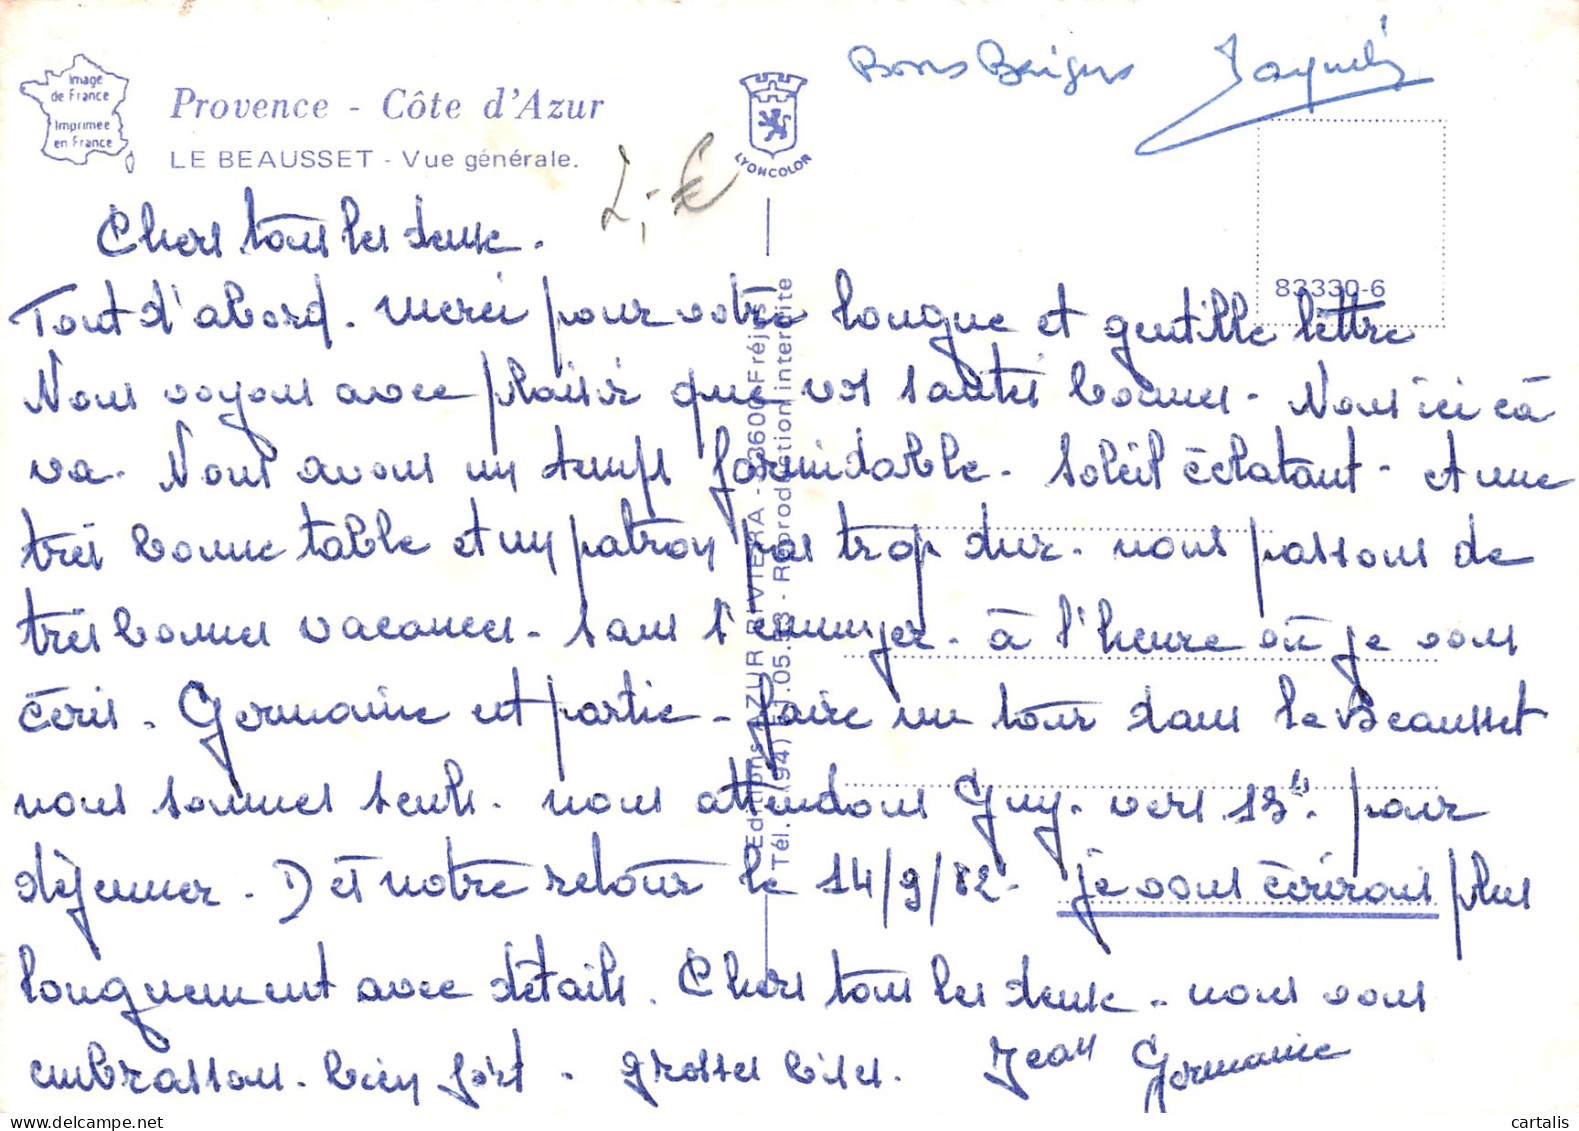 Image
de France
Imprimée
en France
Provence - Côte d'Azur
LE BEAUSSET - Vue générale.
2,-€
LYONCOLOR
Bons Baisers
83330-6
Chers tous les deux.
Tout d'abord. merci pour votre longue et gentille lettre
Nous voyons avec plaisir que vos santés bonnes. Nous ici ça
va. Nous avons un temps formidable. soleil éclatant. et une
très bonne table et un patron pas trop dur. nous passons de
très bonnes vacances. sans s'ennuyer. à l'heure où je vous
écris. Germaine est partie. faire un tour dans le Beausset
nous sommes seuls. nous attendons Guy. vers 13h. pour
déjeuner. Dèt notre retour le 14/9/82. je vous écrirais plus
longuement avec détails. Chers tous les deux. nous vous
embrassons. bien fort. grosses bises. Jean Germaine
Editions AZUR RIVIERA - 83600 Fréjus
Reproduction interdite
cartalis
delcampe.net